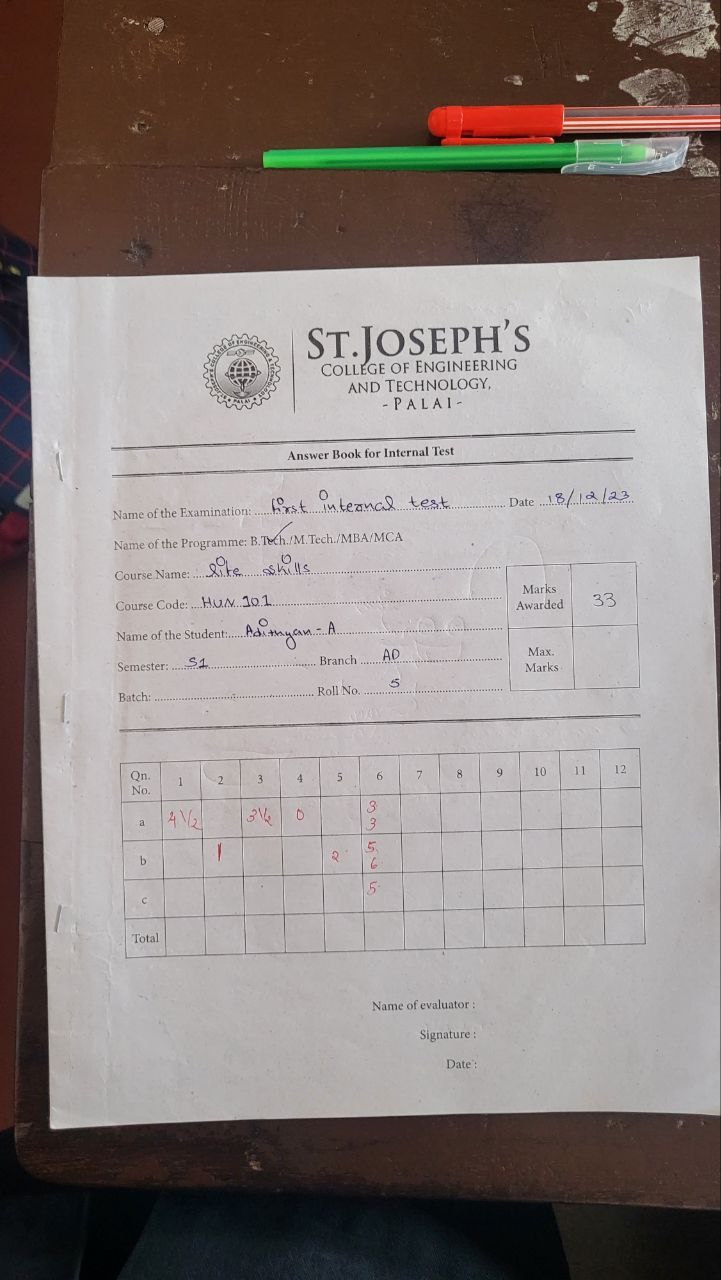 ST.JOSEPH'S
COLLEGE OF ENGINEERING
AND TECHNOLOGY,
- PALAI -
Answer Book for Internal Test
Name of the Examination: first internal test Date 18/12/23
Name of the Programme: B.Tech./M.Tech./MBA/MCA
Course Name: life skills
Course Code: HUN 101
Marks Awarded 33
Name of the Student: Adithyan - A
Semester: S1 Branch AD
Max. Marks
Batch: Roll No. 5
Qn. No. 1 2 3 4 5 6 7 8 9 10 11 12
a 4 1/2 3 1/2 0 3 3
b 1 2 5 6
c 5
Total
Name of evaluator :
Signature :
Date :